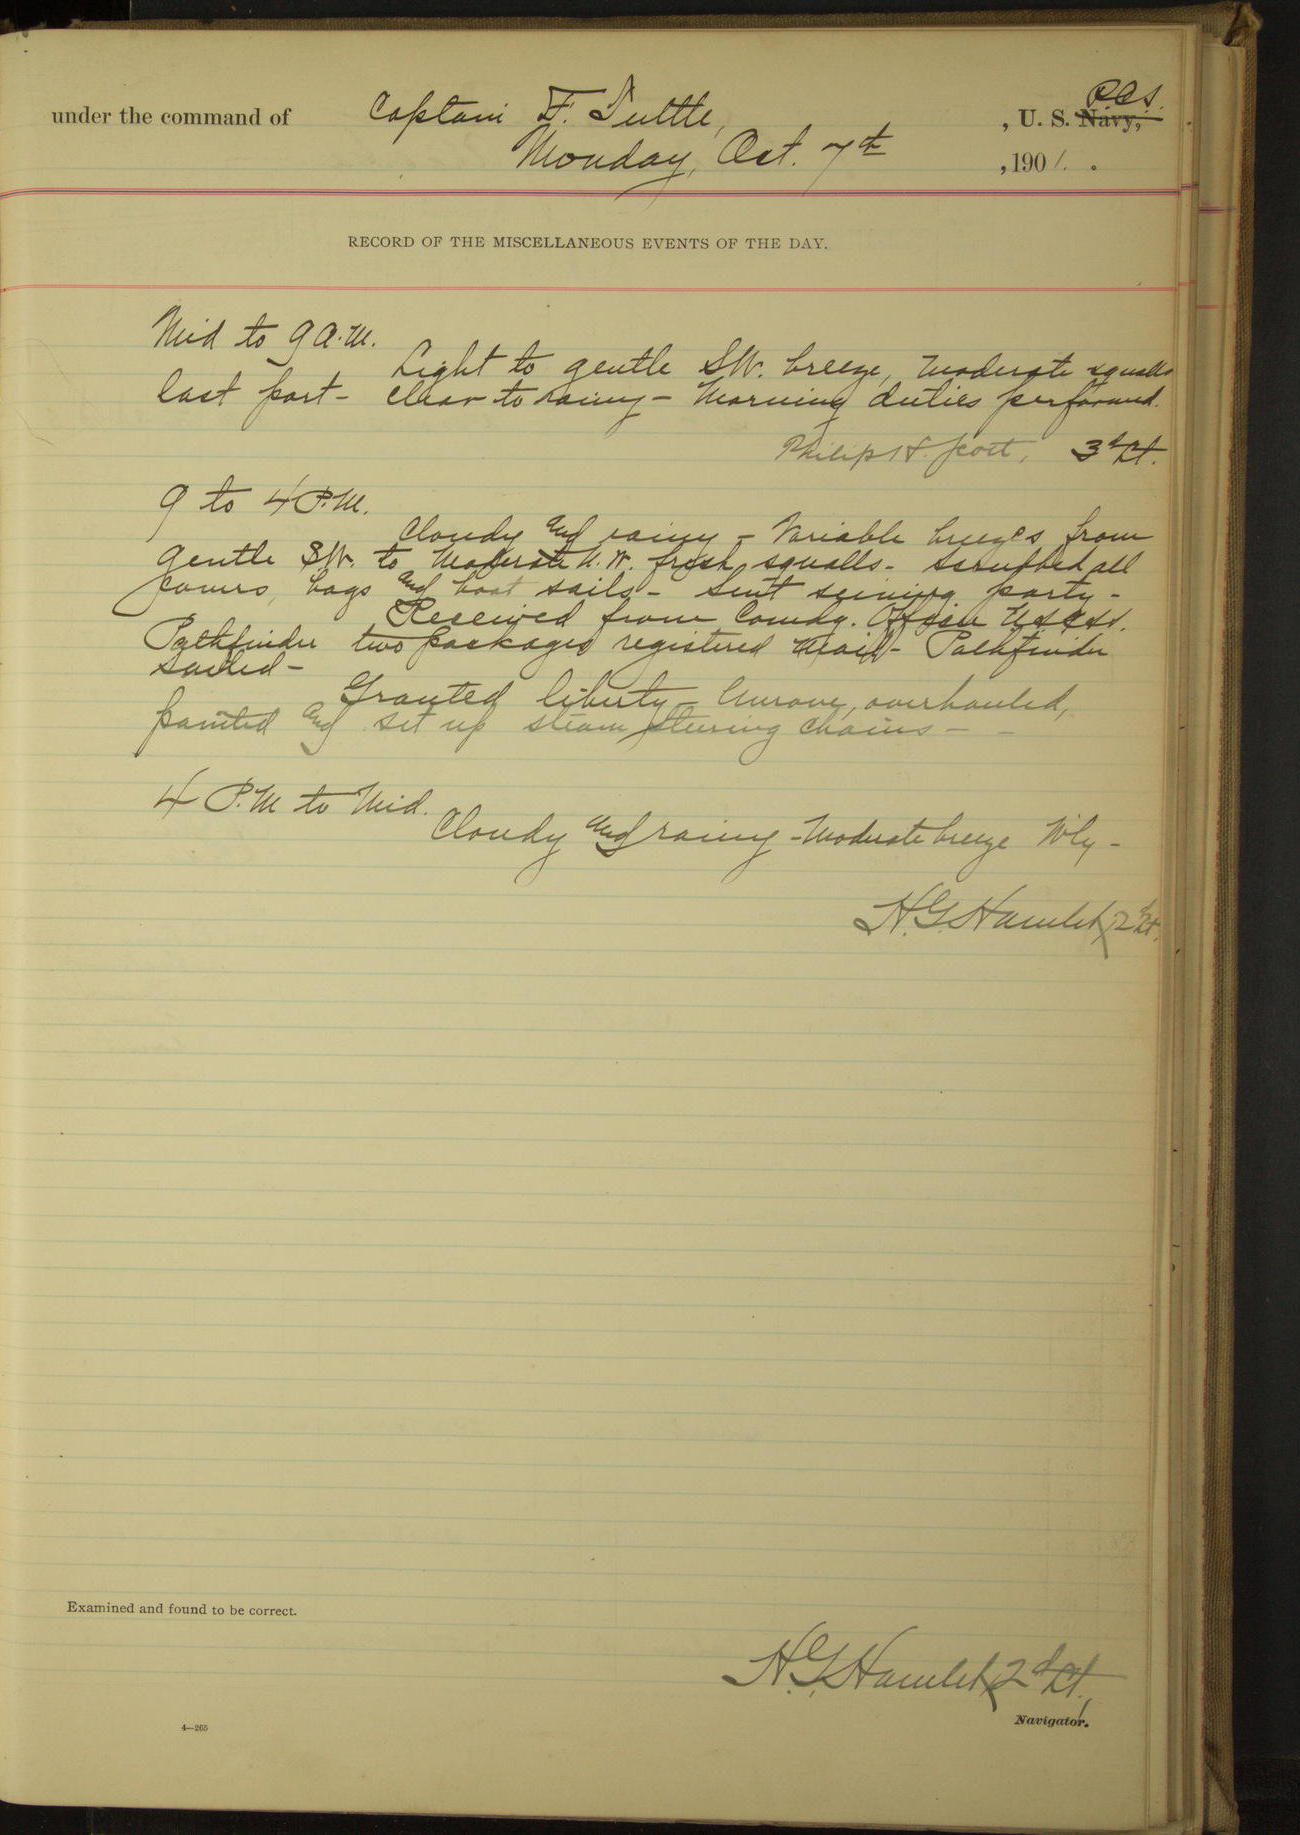 R.C.S.
under the command of Captain F. Tuttle, , U. S. Navy,
Monday, Oct. 7th , 1901.
RECORD OF THE MISCELLANEOUS EVENTS OF THE DAY.
Mid to 9 A.M.
Light to gentle SW. breeze, moderate squalls
last part - clear to rainy - Morning duties performed.
Philip H. Scott, 3d Lt.
9 to 4 P.M.
Cloudy and rainy - Variable breezes from
gentle SW. to Moderate N.W. fresh squalls - scrubbed all
covers, bags and boat sails - sent seining party -
Received from Comdg. Officer U.S.C.S.S.
Pathfinder two packages registered mail - Pathfinder
sailed -
Granted liberty - Unrove, overhauled,
painted and set up steam steering chains - -
4 P.M to Mid.
Cloudy and rainy - Moderate breeze W'ly -
H.G. Hamlet, 2d Lt.
Examined and found to be correct.
H.G. Hamlet, 2d Lt.,
Navigator.
4—265